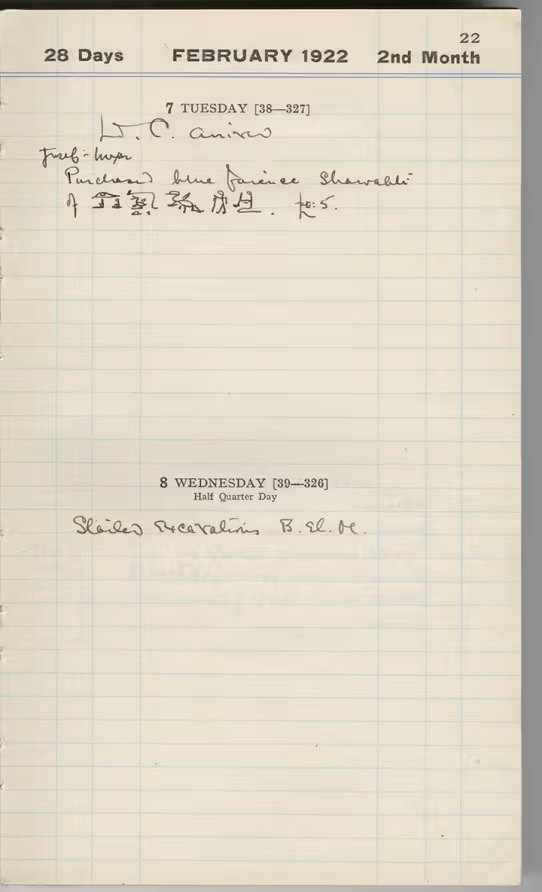 22
28 Days FEBRUARY 1922 2nd Month
7 TUESDAY [38—327]
L. C. arrived
Purchased blue faience Shawabti
of . £E: 5.
8 WEDNESDAY [39—326]
Half Quarter Day
Started Excavations B. El. M.